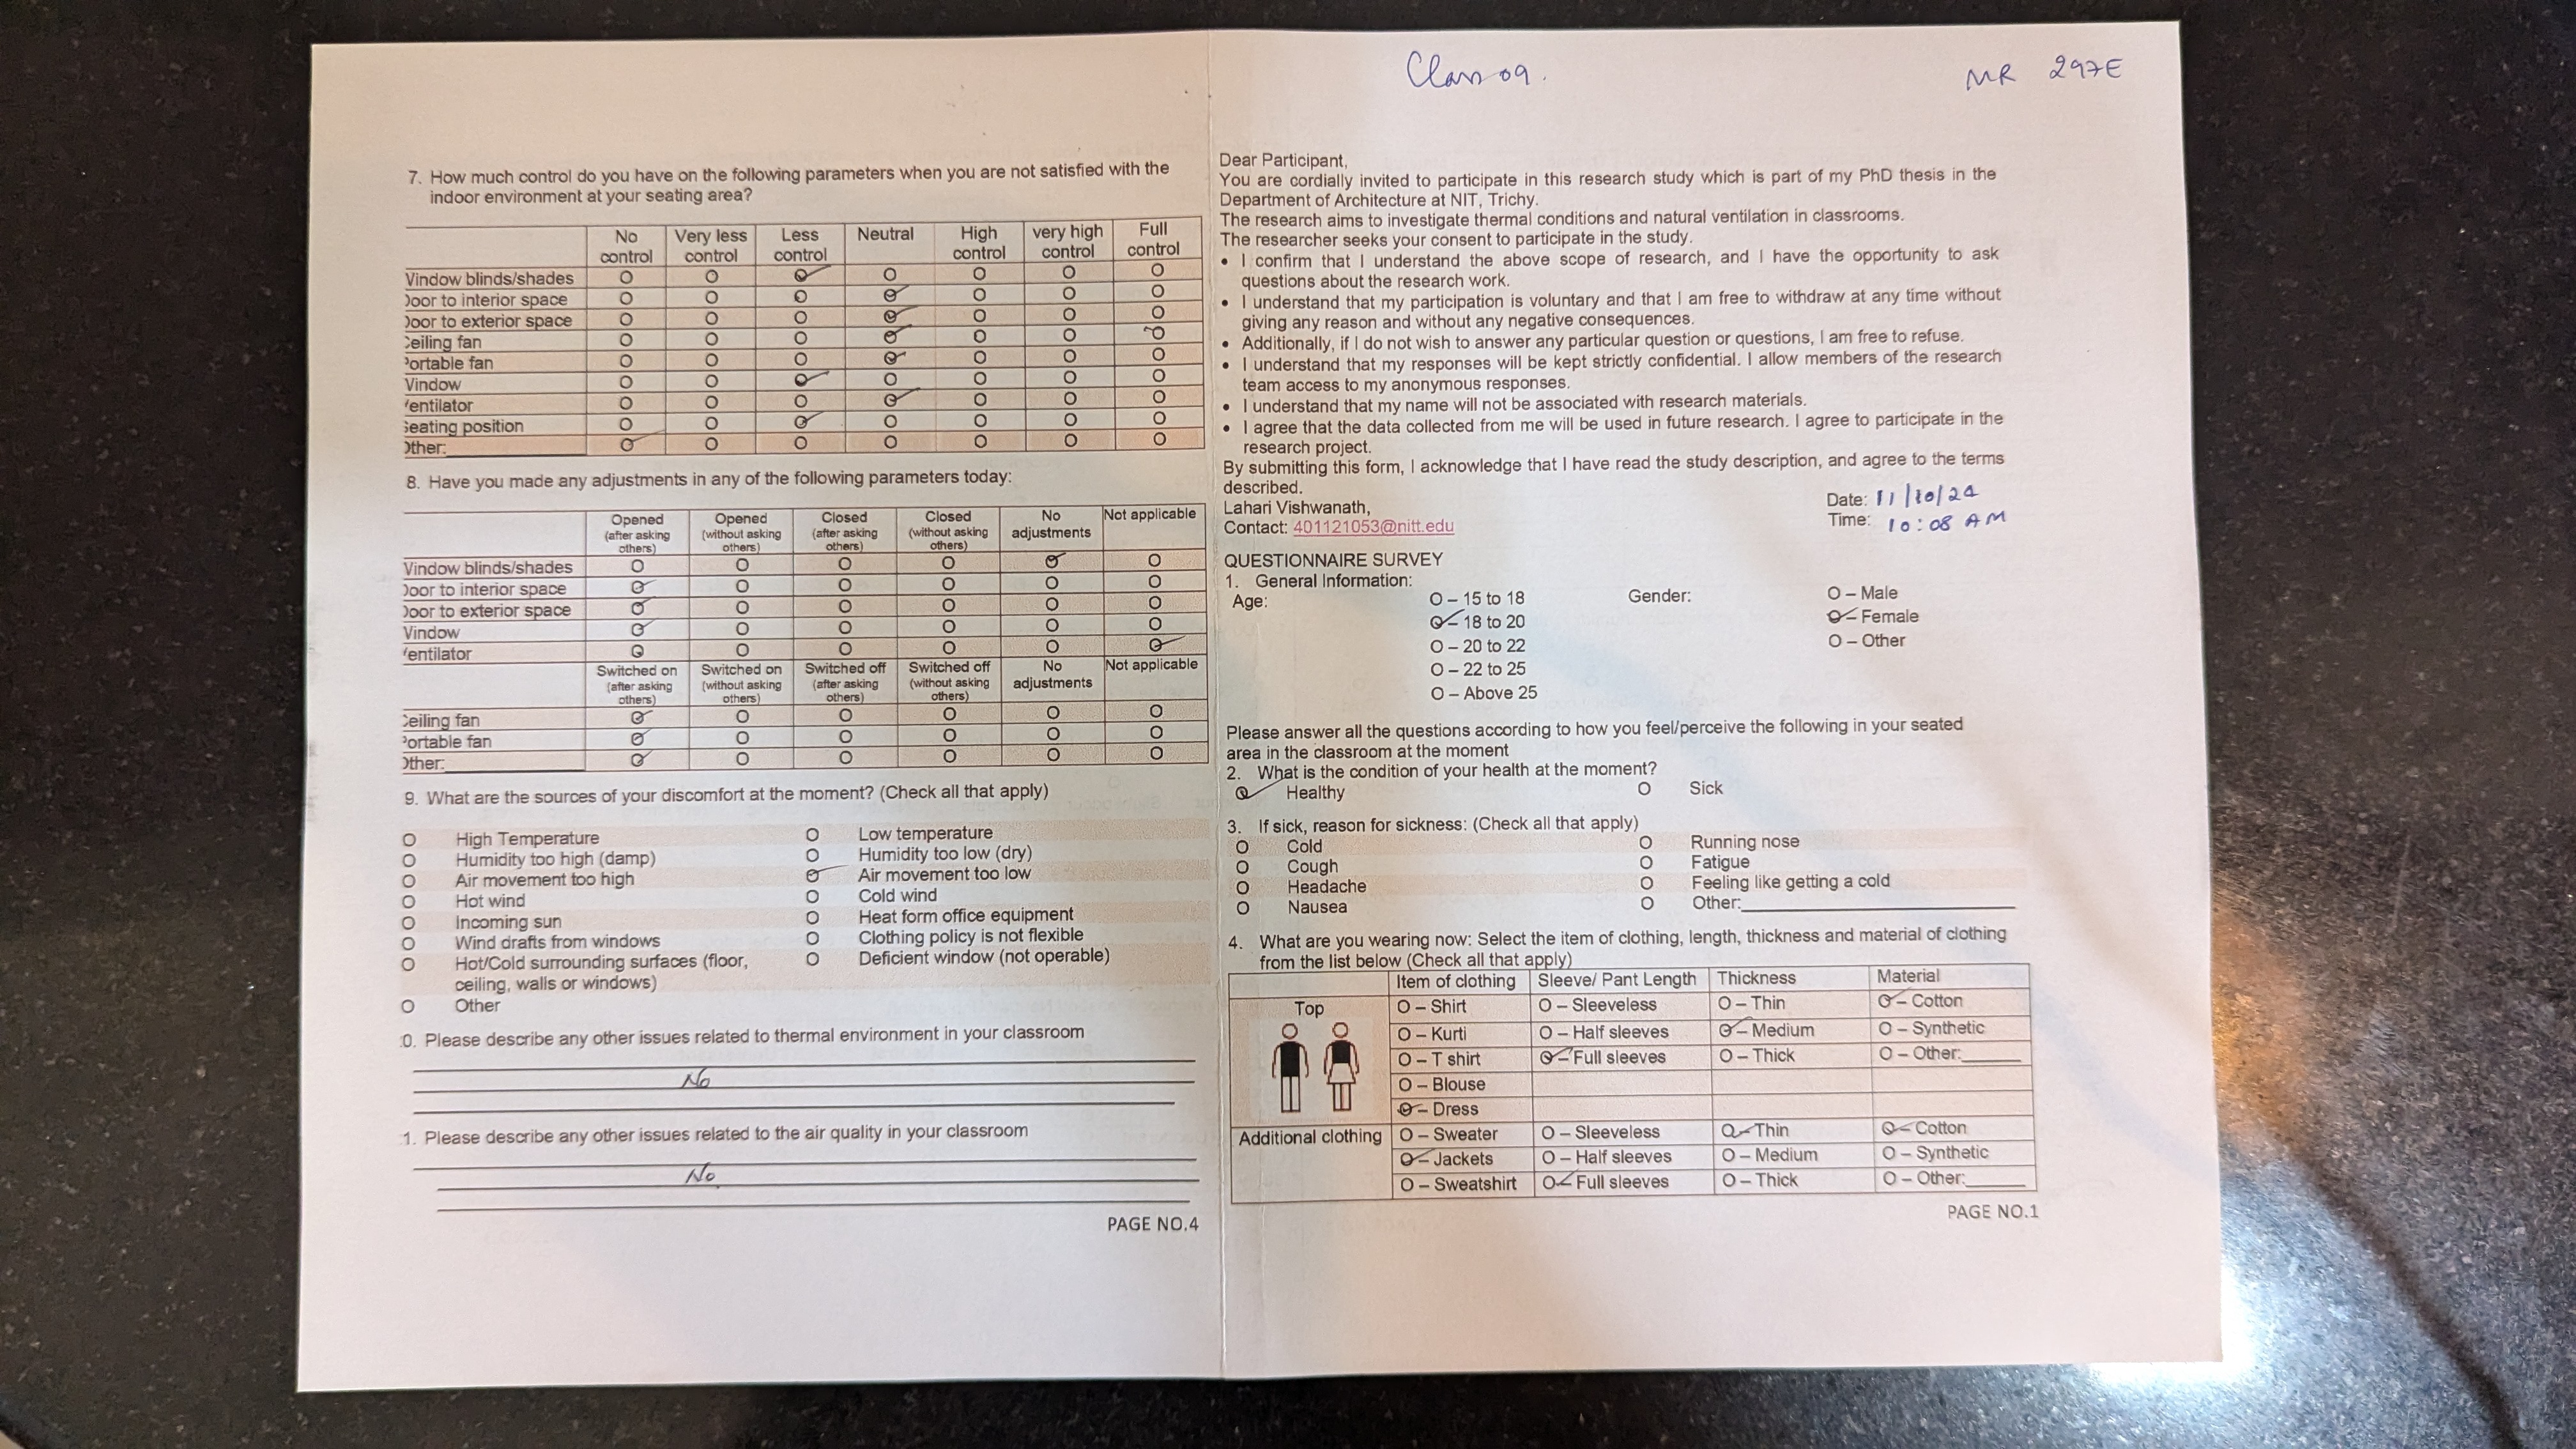 Class 09.
MR 297E
7. How much control do you have on the following parameters when you are not satisfied with the
indoor environment at your seating area?
No control Very less control Less control Neutral High control very high control Full control
Vindow blinds/shades O O O O O O O
Door to interior space O O O O O O O
Door to exterior space O O O O O O O
Ceiling fan O O O O O O O
Portable fan O O O O O O O
Vindow O O O O O O O
Ventilator O O O O O O O
Seating position O O O O O O O
Other: O O O O O O O
8. Have you made any adjustments in any of the following parameters today:
Opened (after asking others) Opened (without asking others) Closed (after asking others) Closed (without asking others) No adjustments Not applicable
Vindow blinds/shades O O O O O O
Door to interior space O O O O O O
Door to exterior space O O O O O O
Vindow O O O O O O
Ventilator O O O O O O
Switched on (after asking others) Switched on (without asking others) Switched off (after asking others) Switched off (without asking others) No adjustments Not applicable
Ceiling fan O O O O O O
Portable fan O O O O O O
Other: O O O O O O
9. What are the sources of your discomfort at the moment? (Check all that apply)
O High Temperature O Low temperature
O Humidity too high (damp) O Humidity too low (dry)
O Air movement too high O Air movement too low
O Hot wind O Cold wind
O Incoming sun O Heat form office equipment
O Wind drafts from windows O Clothing policy is not flexible
O Hot/Cold surrounding surfaces (floor, O Deficient window (not operable)
ceiling, walls or windows)
O Other
0. Please describe any other issues related to thermal environment in your classroom
No
1. Please describe any other issues related to the air quality in your classroom
No
PAGE NO.4
Dear Participant,
You are cordially invited to participate in this research study which is part of my PhD thesis in the
Department of Architecture at NIT, Trichy.
The research aims to investigate thermal conditions and natural ventilation in classrooms.
The researcher seeks your consent to participate in the study.
• I confirm that I understand the above scope of research, and I have the opportunity to ask
questions about the research work.
• I understand that my participation is voluntary and that I am free to withdraw at any time without
giving any reason and without any negative consequences.
• Additionally, if I do not wish to answer any particular question or questions, I am free to refuse.
• I understand that my responses will be kept strictly confidential. I allow members of the research
team access to my anonymous responses.
• I understand that my name will not be associated with research materials.
• I agree that the data collected from me will be used in future research. I agree to participate in the
research project.
By submitting this form, I acknowledge that I have read the study description, and agree to the terms
described.
Lahari Vishwanath,
Contact: 401121053@nitt.edu
Date: 11/10/24
Time: 10:08 AM
QUESTIONNAIRE SURVEY
1. General Information:
Age: O – 15 to 18 Gender: O – Male
O – 18 to 20 O – Female
O – 20 to 22 O – Other
O – 22 to 25
O – Above 25
Please answer all the questions according to how you feel/perceive the following in your seated
area in the classroom at the moment
2. What is the condition of your health at the moment?
O Healthy O Sick
3. If sick, reason for sickness: (Check all that apply)
O Cold O Running nose
O Cough O Fatigue
O Headache O Feeling like getting a cold
O Nausea O Other:
4. What are you wearing now: Select the item of clothing, length, thickness and material of clothing
from the list below (Check all that apply)
Item of clothing Sleeve/ Pant Length Thickness Material
Top O – Shirt O – Sleeveless O – Thin O – Cotton
O – Kurti O – Half sleeves O – Medium O – Synthetic
O – T shirt O – Full sleeves O – Thick O – Other:
O – Blouse
O – Dress
Additional clothing O – Sweater O – Sleeveless O – Thin O – Cotton
O – Jackets O – Half sleeves O – Medium O – Synthetic
O – Sweatshirt O – Full sleeves O – Thick O – Other:
PAGE NO.1